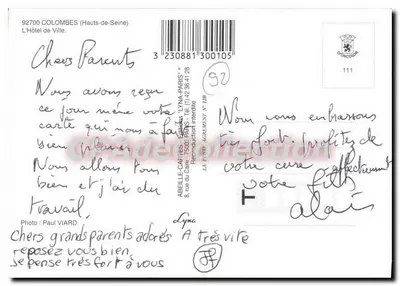 92700 COLOMBES (Hauts-de-Seine)
L'Hôtel de Ville.
3 230881 300105
92
111
Chers Parents
Nous avons reçu
ce jour même votre
carte qui nous a fait
bien plaisir.
Nous allons tous
bien et j'ai du
travail.
Nous vous embrassons
très fort profitez de
votre cure affectueusement
votre fils
alain
ABEILLE-CARTES - Editions "LYNA-PARIS"
8, rue du Caire - 75002 PARIS - Tél. (1) 42 36 41 28
Reproduction interdite
AGREMENT N° 120
Photo : Paul VIARD
Lyna
Chers grandsparents adorés A très vite
reposez vous bien,
je pense très fort à vous